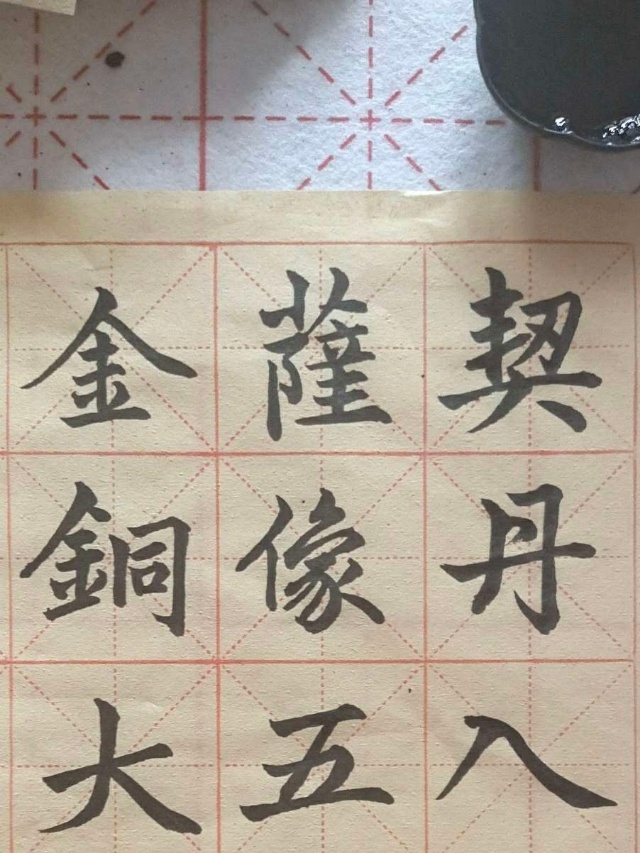 契丹入
薩像五
金銅大